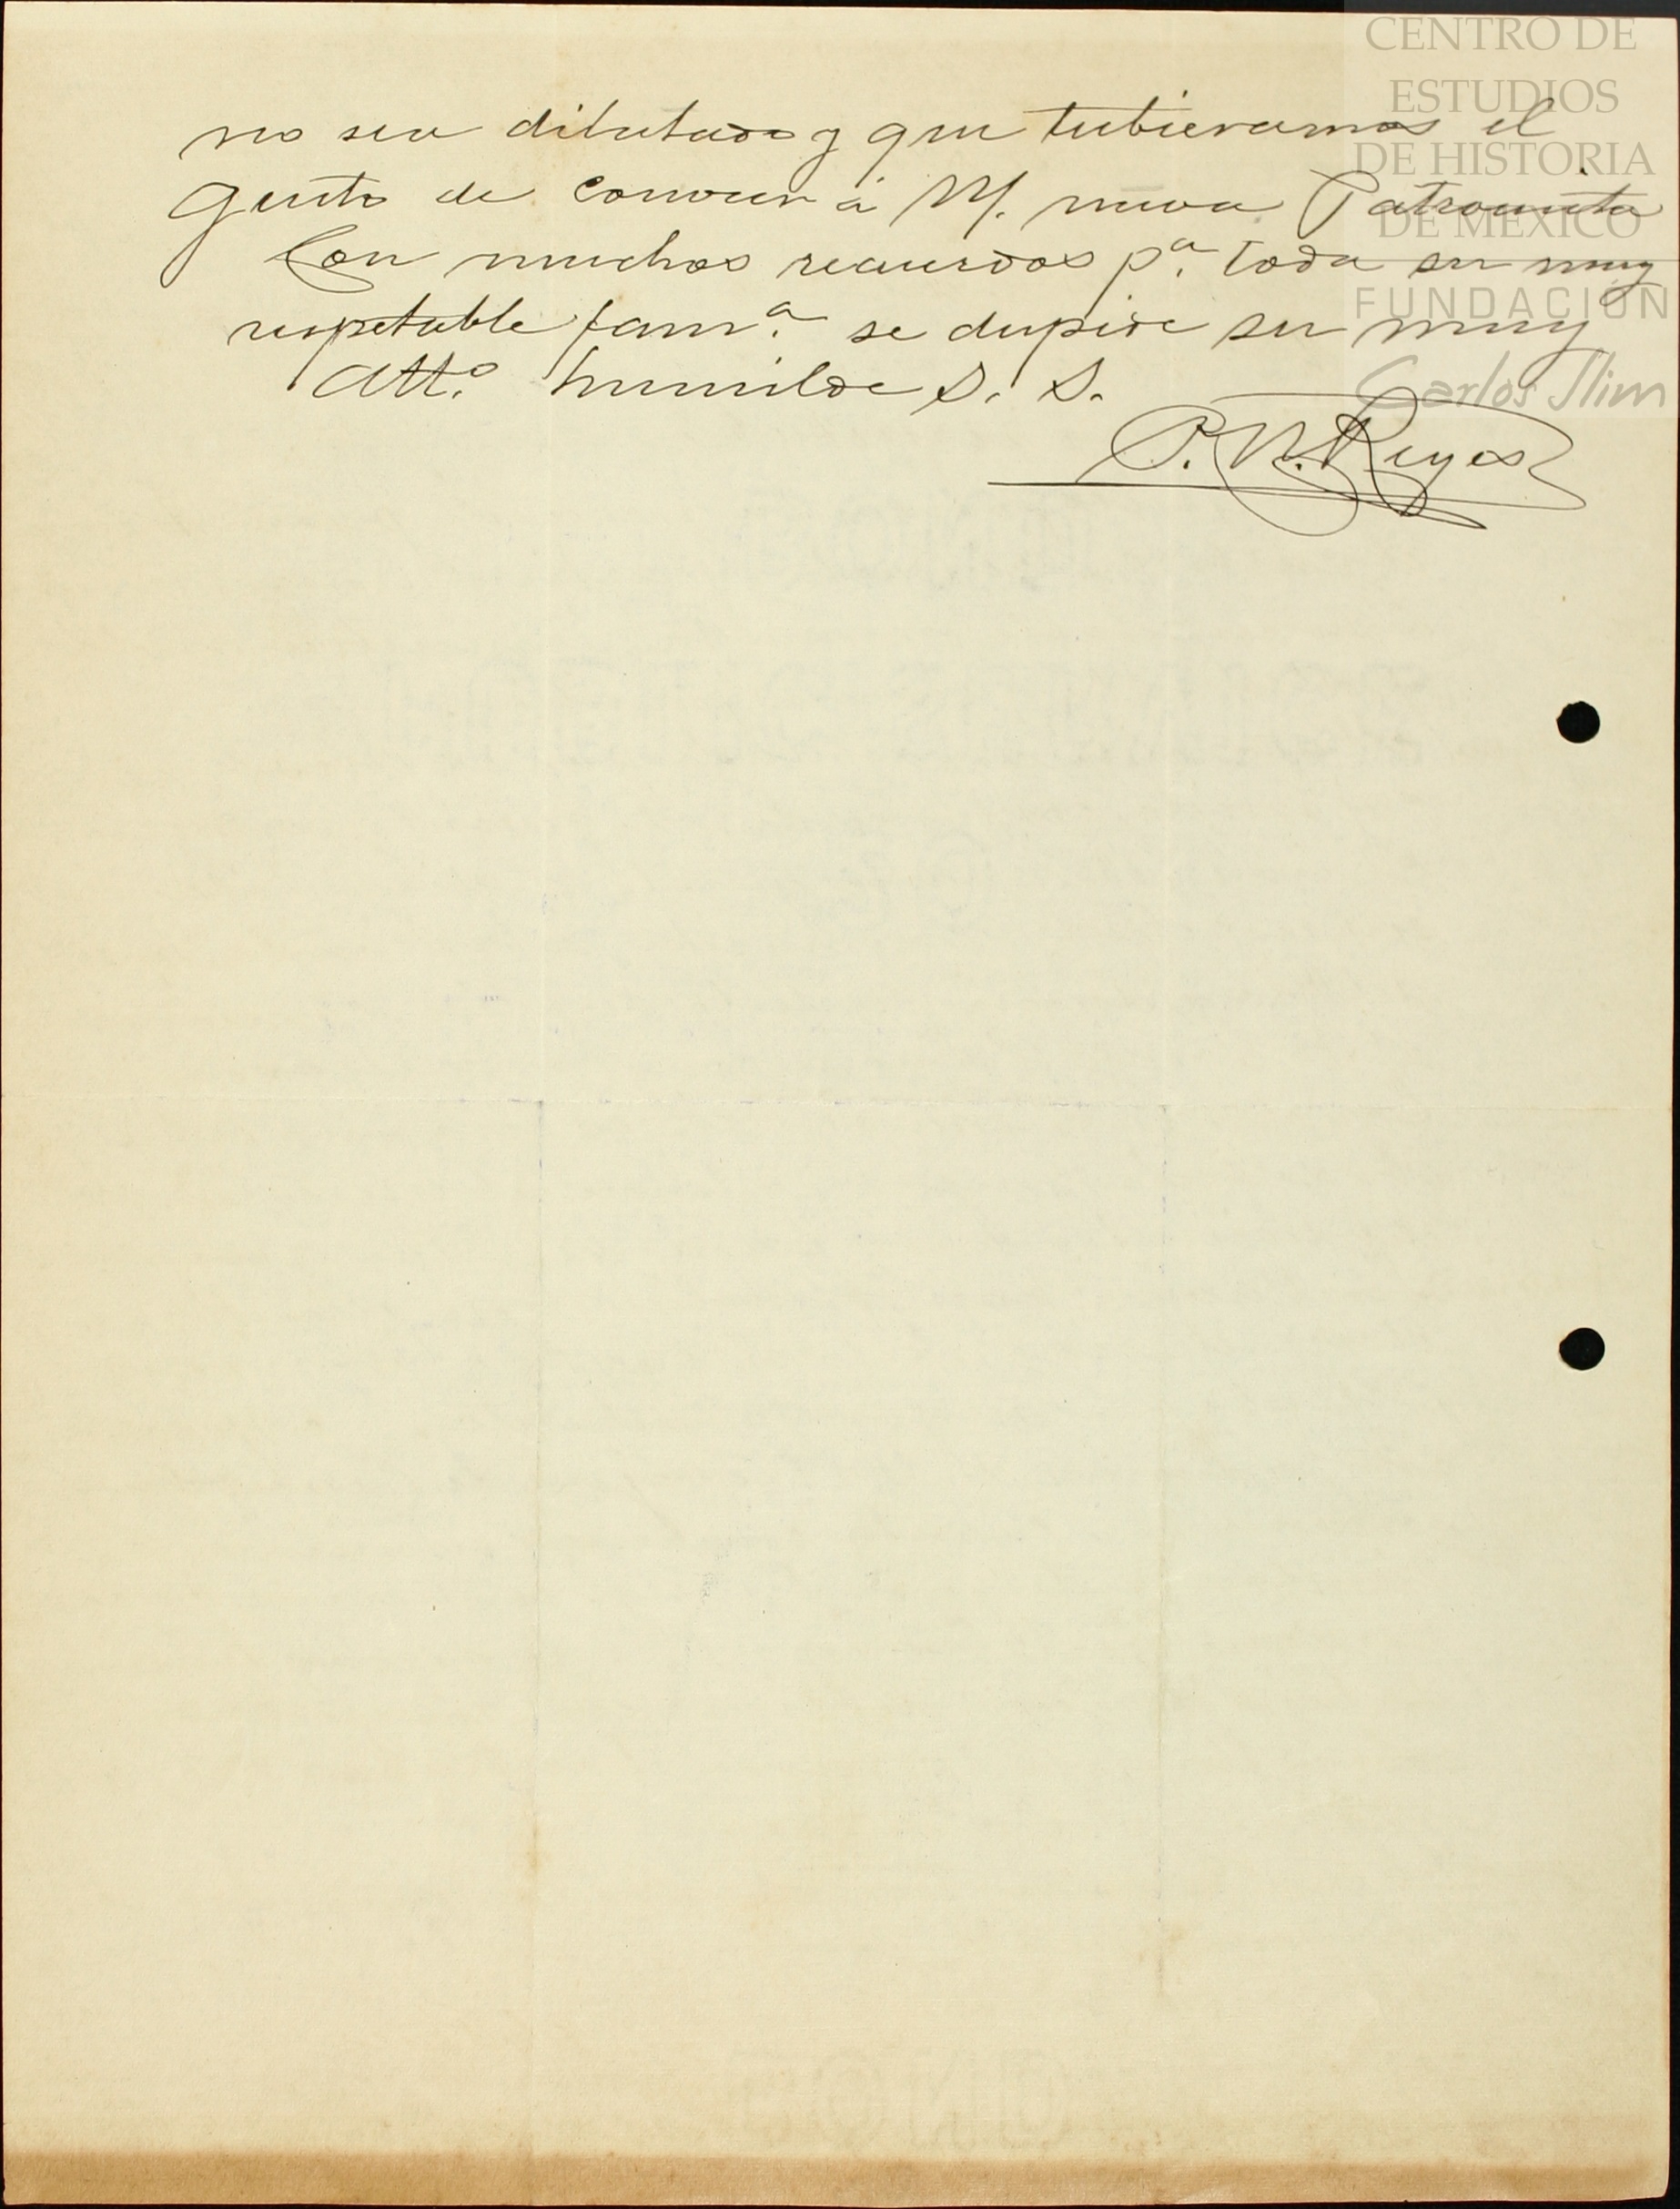 CENTRO DE
ESTUDIOS
DE HISTORIA
DE MÉXICO
FUNDACIÓN
Carlos Slim
no sea dilatado y que tubieramos el
gusto de conocer á N. nueva Patroncita
Con muchos recuerdos pª. toda su muy
respetable famª. se despide su muy
Attº. humilde S. S.
P. N. Reyes